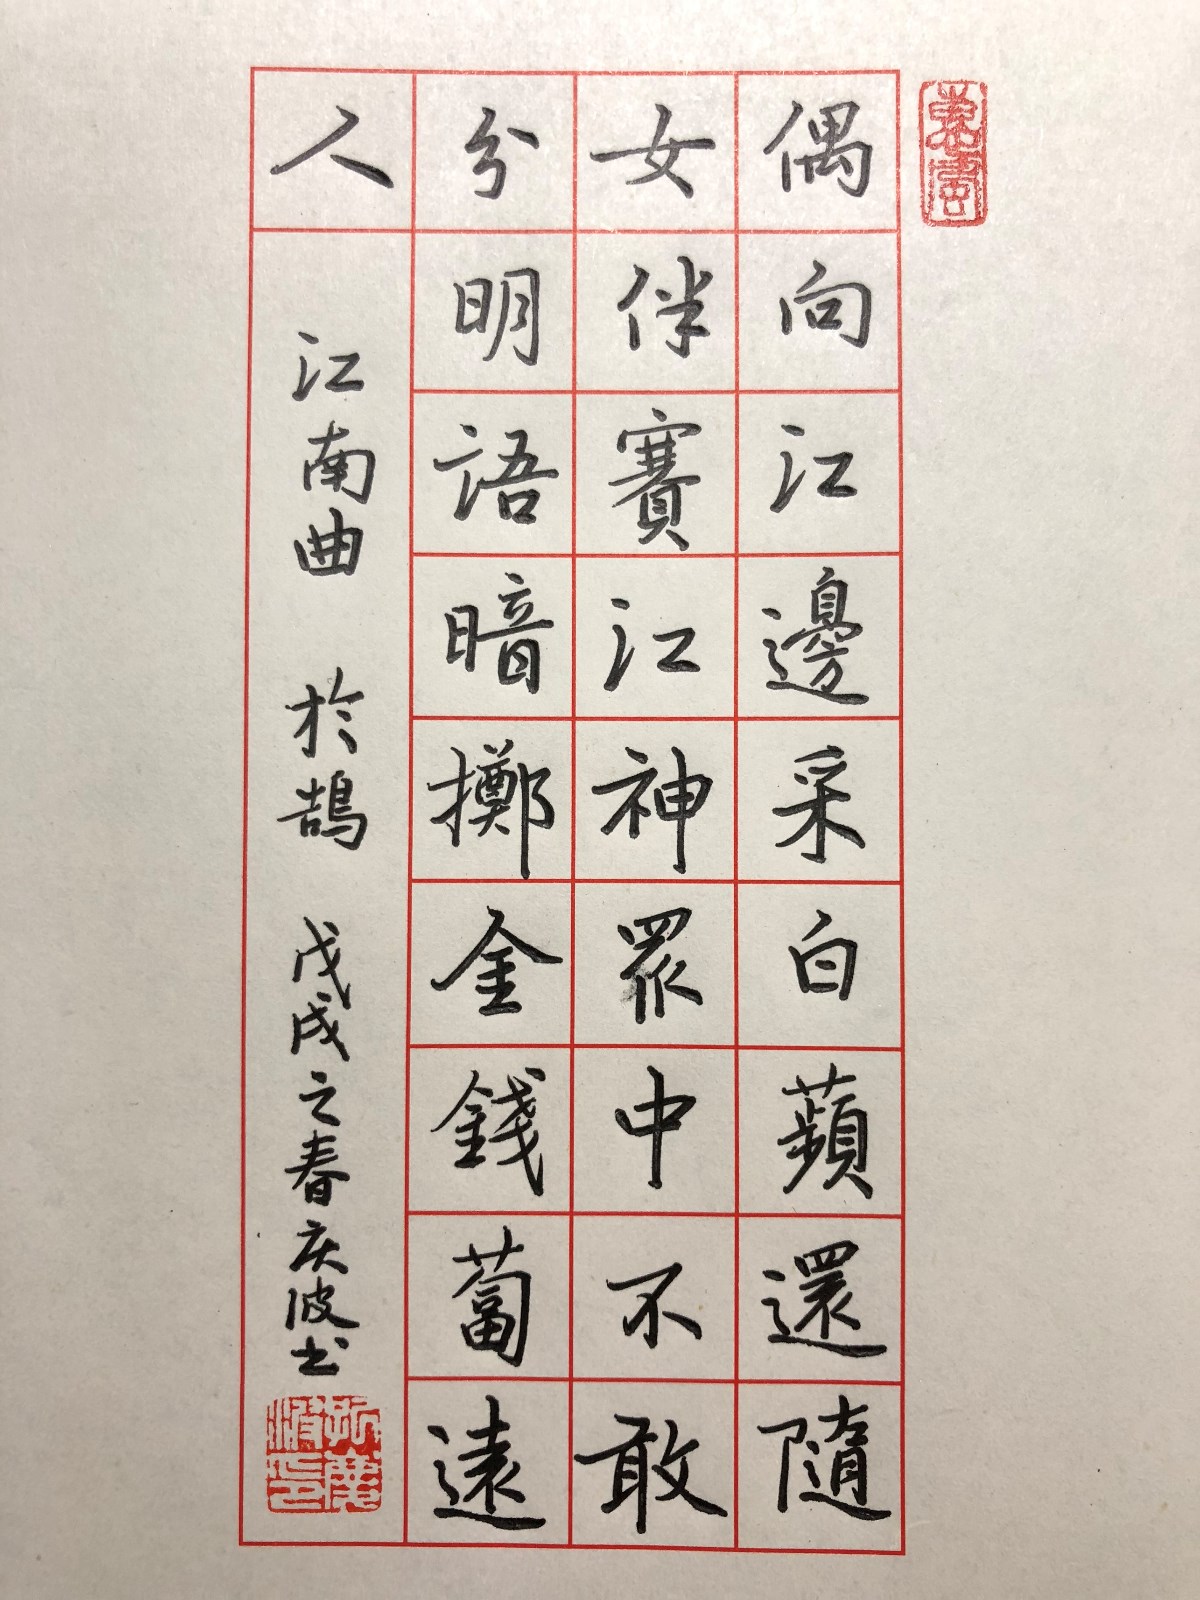 偶向江邊采白蘋還隨
女伴賽江神眾中不敢
分明語暗擲金錢蔔遠
人 江南曲 於鵠 戊戌之春庆波书